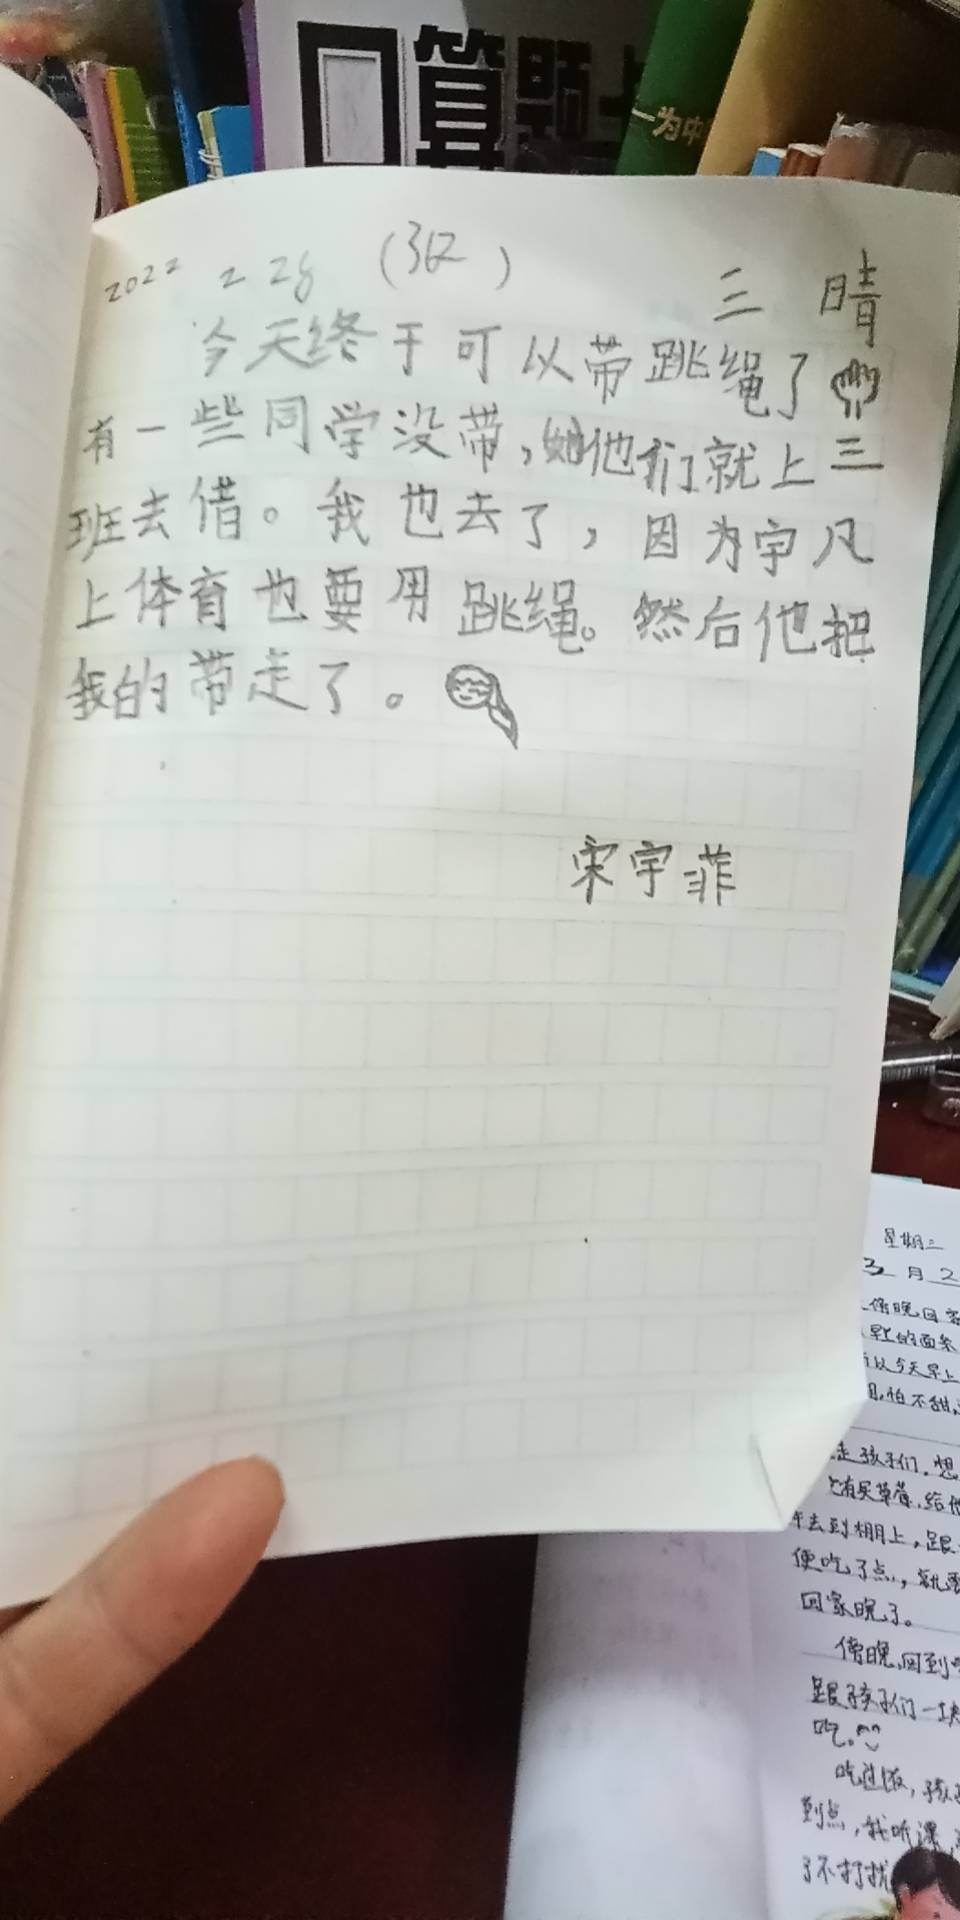 口算题
一为中
2022 2 28 (362) 三 晴
今天终于可以带跳绳了
有一些同学没带,他们就上三
班去借。我也去了,因为宇凡
上体育也要用跳绳。然后他把
我的带走了。
宋宇菲
星期二
3月2
傍晚回家
的面条
以今天早上
怕不甜,
走孩子们.想
有买草莓.给他
去到棚上,跟
便吃了点,就
回家晚了。
傍晚回到
跟孩子们一块
吃。
吃过饭,孩子
到点,我听课,
了不打扰